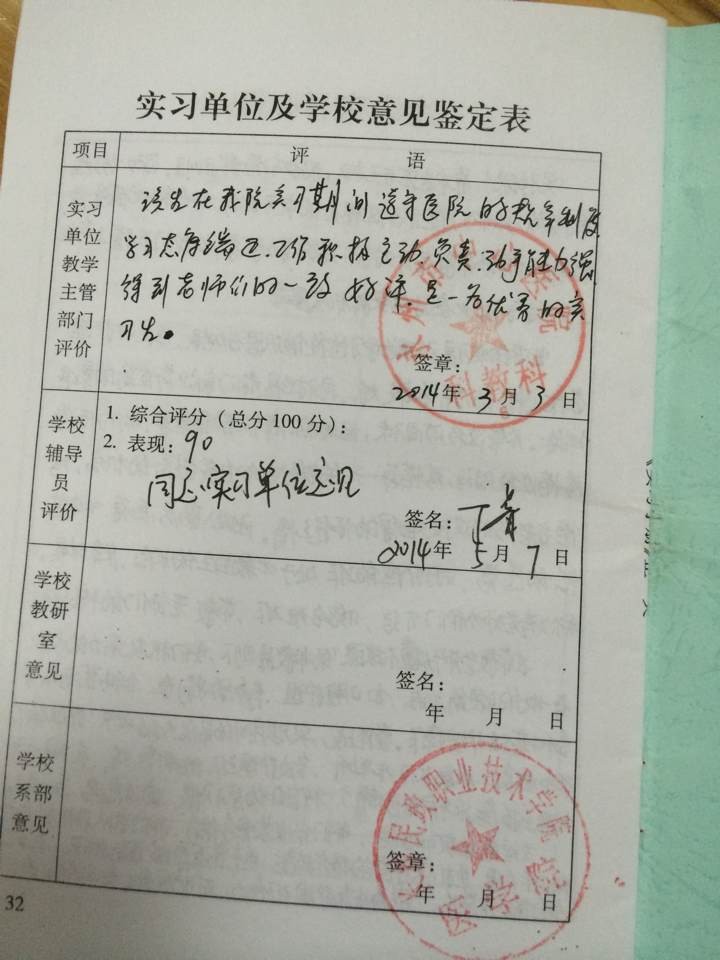 实习单位及学校意见鉴定表
项目 评 语
实习
单位
教学
主管
部门
评价
该生在我院实习期间遵守医院的规章制度
学习态度端正.工作积极主动.负责.动手能力强
得到老师们的一致好评.是一名优秀的实
习生。
州 医院
科教科
签章:
2014年 3月 3日
学校
辅导
员
评价
1. 综合评分(总分100分):
2. 表现: 90
同意实习单位意见
签名:
2014年 5月 7日
学校
教研
室
意见
签名:
年 月 日
学校
系部
意见
民族职业技术学院
医学院
签章:
年 月 日
32